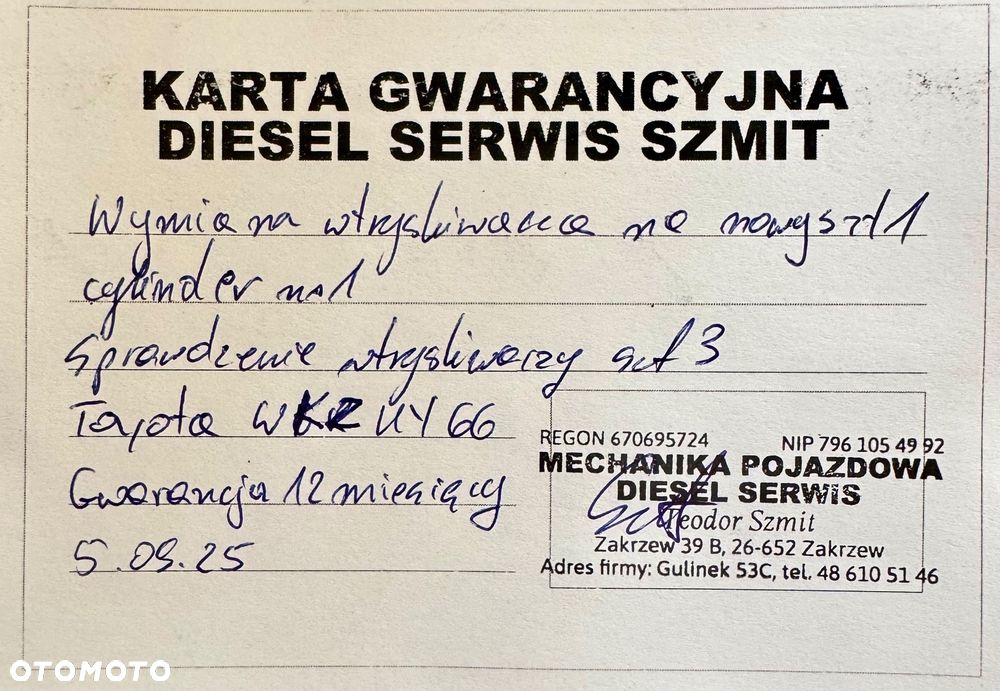 KARTA GWARANCYJNA
DIESEL SERWIS SZMIT
Wymiana wtryskiwacza na nowy szt 1
cylinder nr 1
Sprawdzenie wtryskiwaczy szt 3
Toyota WKZ UY66
Gwarancja 12 miesięcy
5.09.25
REGON 670695724 NIP 796 105 49 92
MECHANIKA POJAZDOWA
DIESEL SERWIS
Teodor Szmit
Zakrzew 39 B, 26-652 Zakrzew
Adres firmy: Gulinek 53C, tel. 48 610 51 46
OTOMOTO